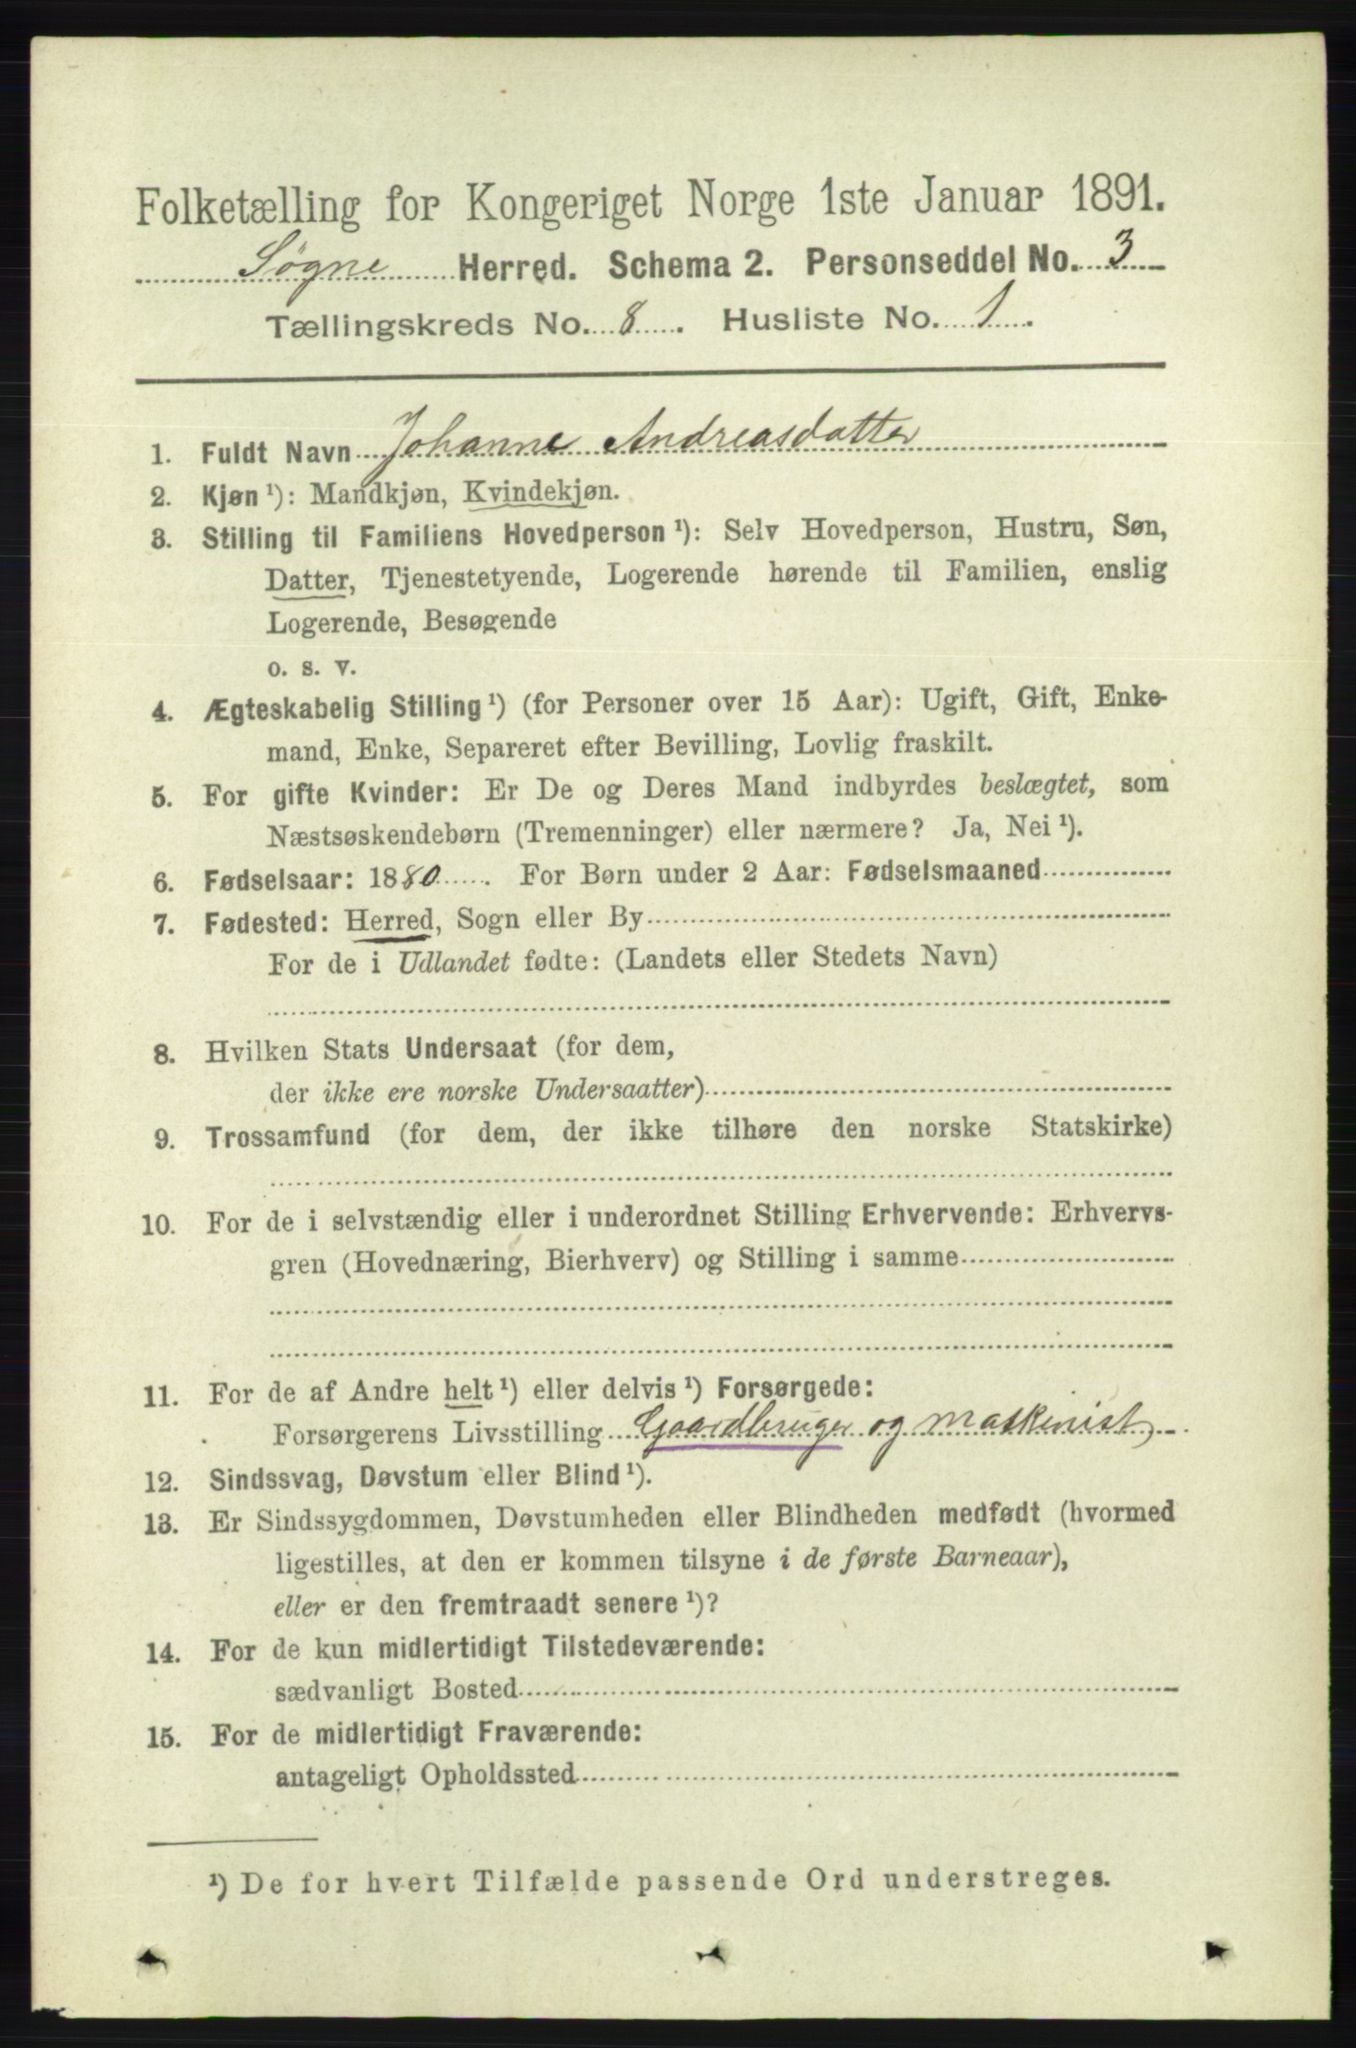 Folketælling for Kongeriget Norge 1ste Januar 1891.
Søgne Herred. Schema 2. Personseddel No. 3
Tællingskreds No. 8. Husliste No. 1.
1. Fuldt Navn Johanne Andreasdatter
2. Kjøn ¹): Mandkjøn, Kvindekjøn.
3. Stilling til Familiens Hovedperson ¹): Selv Hovedperson, Hustru, Søn,
Datter, Tjenestetyende, Logerende hørende til Familien, enslig
Logerende, Besøgende
o. s. v.
4. Ægteskabelig Stilling ¹) (for Personer over 15 Aar): Ugift, Gift, Enke-
mand, Enke, Separeret efter Bevilling, Lovlig fraskilt.
5. For gifte Kvinder: Er De og Deres Mand indbyrdes beslægtet, som
Næstsøskendebørn (Tremenninger) eller nærmere? Ja, Nei ¹).
6. Fødselsaar: 1880. For Børn under 2 Aar: Fødselsmaaned
7. Fødested: Herred, Sogn eller By
For de i Udlandet fødte: (Landets eller Stedets Navn)
8. Hvilken Stats Undersaat (for dem,
der ikke ere norske Undersaatter)
9. Trossamfund (for dem, der ikke tilhøre den norske Statskirke)
10. For de i selvstændig eller i underordnet Stilling Erhvervende: Erhvervs-
gren (Hovednæring, Bierhverv) og Stilling i samme
11. For de af Andre helt ¹) eller delvis ¹) Forsørgede:
Forsørgerens Livsstilling Gaardbruger og maskinist
12. Sindssvag, Døvstum eller Blind ¹).
13. Er Sindssygdommen, Døvstumheden eller Blindheden medfødt (hvormed
ligestilles, at den er kommen tilsyne i de første Barneaar),
eller er den fremtraadt senere ¹)?
14. For de kun midlertidigt Tilstedeværende:
sædvanligt Bosted
15. For de midlertidigt Fraværende:
antageligt Opholdssted
¹) De for hvert Tilfælde passende Ord understreges.